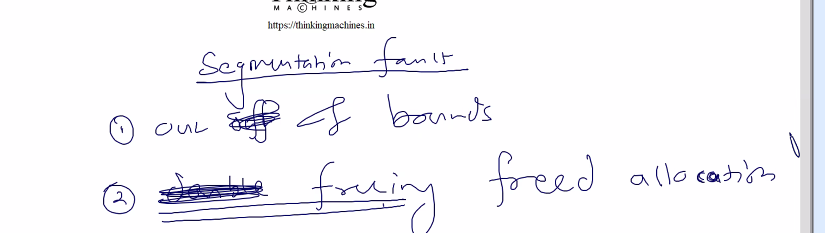 MACHINES
https://thinkingmachines.in
Segmentation fault
① out of bounds
② freeing freed allocation